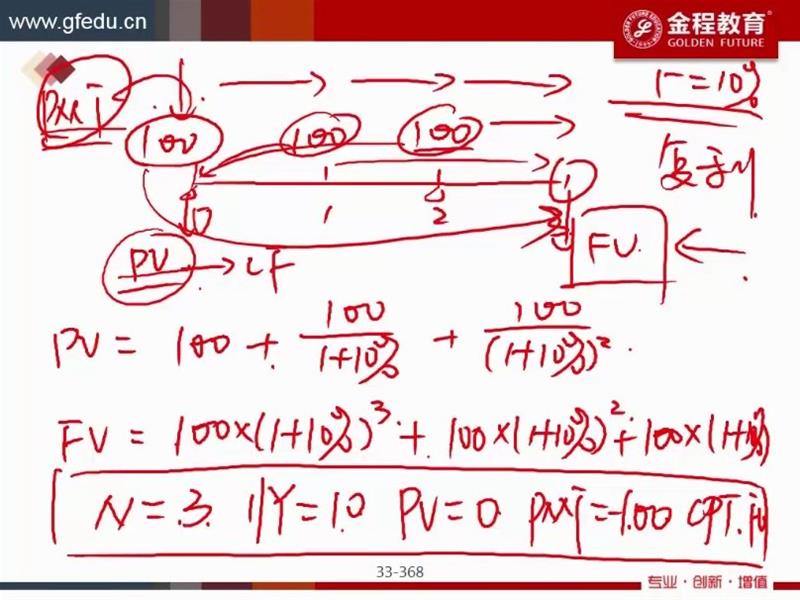 www.gfedu.cn
金程教育
GOLDEN FUTURE
PMT
r=10%
100 100 100
复利
0 1 2
PV → CF
FV
PV = 100 + 100/(1+10%) + 100/(1+10%)²
FV = 100×(1+10%)³ + 100×(1+10%)² + 100×(1+10%)
N=3 I/Y=10 PV=0 PMT=-100 CPT.FV
33-368
专业·创新·增值